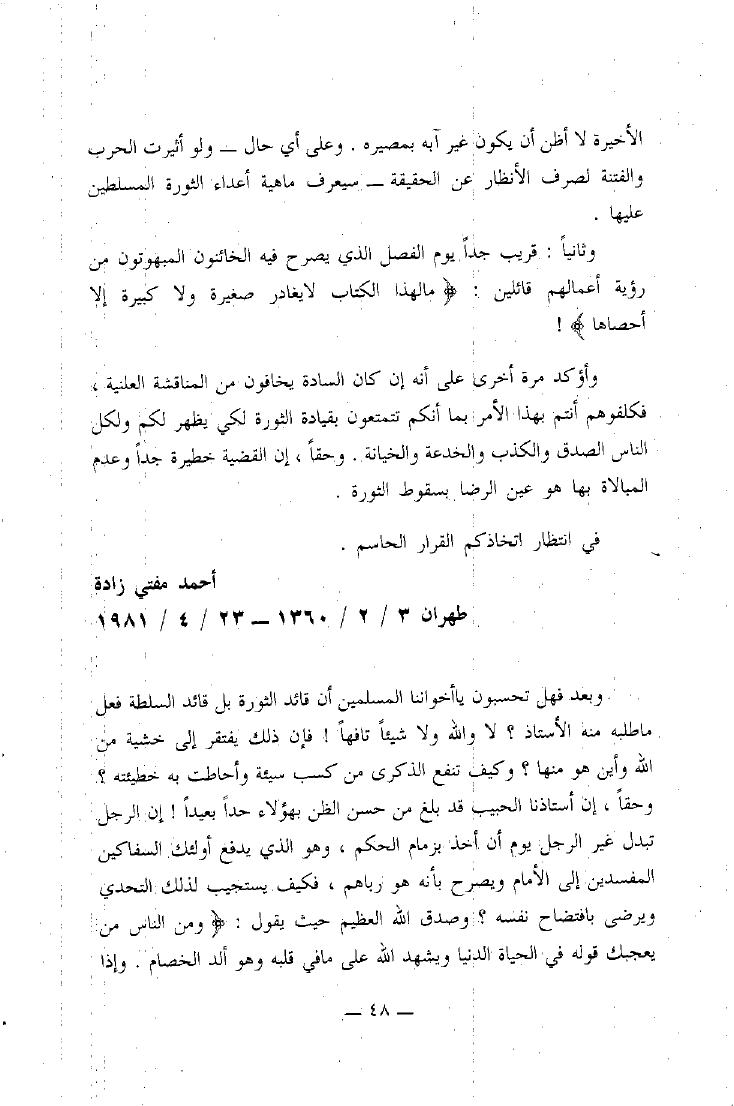 الأخيرة لا أظن أن يكون غير آبه بمصيره . وعلى أي حال ــ ولو أثيرت الحرب
والفتنة لصرف الأنظار عن الحقيقة ــ سيعرف ماهية أعداء الثورة المسلطين
عليها .
وثانياً : قريب جداً يوم الفصل الذي يصرح فيه الخائنون المبهوتون من
رؤية أعمالهم قائلين : ﴿ مالهذا الكتاب لايغادر صغيرة ولا كبيرة إلا
أحصاها ﴾ !
وأؤكد مرة أخرى على أنه إن كان السادة يخافون من المناقشة العلنية ،
فكلفوهم أنتم بهذا الأمر بما أنكم تتمتعون بقيادة الثورة لكي يظهر لكم ولكل
الناس الصدق والكذب والخدعة والخيانة . وحقاً ، إن القضية خطيرة جداً وعدم
المبالاة بها هو عين الرضا بسقوط الثورة .
في انتظار اتخاذكم القرار الحاسم .
أحمد مفتي زادة
طهران ٣ / ٢ / ١٣٦٠ ــ ٢٣ / ٤ / ١٩٨١
وبعد فهل تحسبون ياأخواننا المسلمين أن قائد الثورة بل قائد السلطة فعل
ماطلبه منه الأستاذ ؟ لا والله ولا شيئاً تافهاً ! فإن ذلك يفتقر إلى خشية من
الله وأين هو منها ؟ وكيف تنفع الذكرى من كسب سيئة وأحاطت به خطيئته ؟
وحقاً ، إن أستاذنا الحبيب قد بلغ من حسن الظن بهؤلاء حداً بعيداً ! إن الرجل
تبدل غير الرجل يوم أن أخذ بزمام الحكم ، وهو الذي يدفع أولئك السفاكين
المفسدين إلى الأمام ويصرح بأنه هو رباهم ، فكيف يستجيب لذلك التحدي
ويرضى بافتضاح نفسه ؟ وصدق الله العظيم حيث يقول : ﴿ ومن الناس من
يعجبك قوله في الحياة الدنيا ويشهد الله على مافي قلبه وهو ألد الخصام . وإذا
ــ ٤٨ ــ